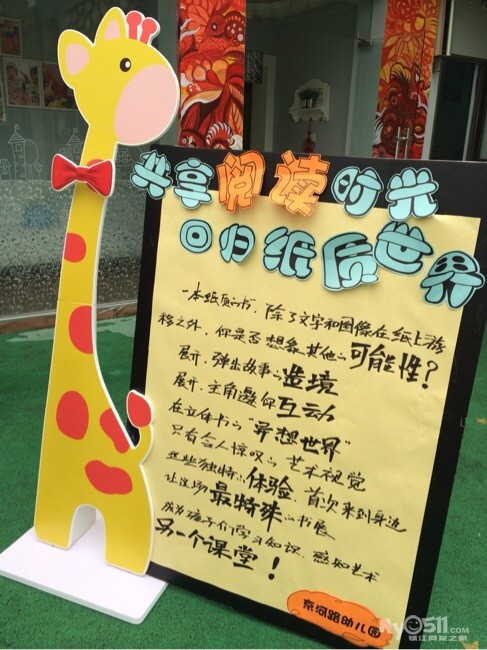 共享阅读时光
回归纸质世界
一本纸质的书，除了文字和图像在纸上游
移之外，你是否想象其他的可能性？
展开，弹出故事的造境
展开，主角邀你互动
在立体书的“异想世界”
只有令人惊叹的艺术视觉
这些独特的体验，首次来到身边
让这场最特殊的书展
成为孩子们学习知识、感知艺术
另一个课堂！
京河路幼儿园
My0511.COM
镇江网友之家